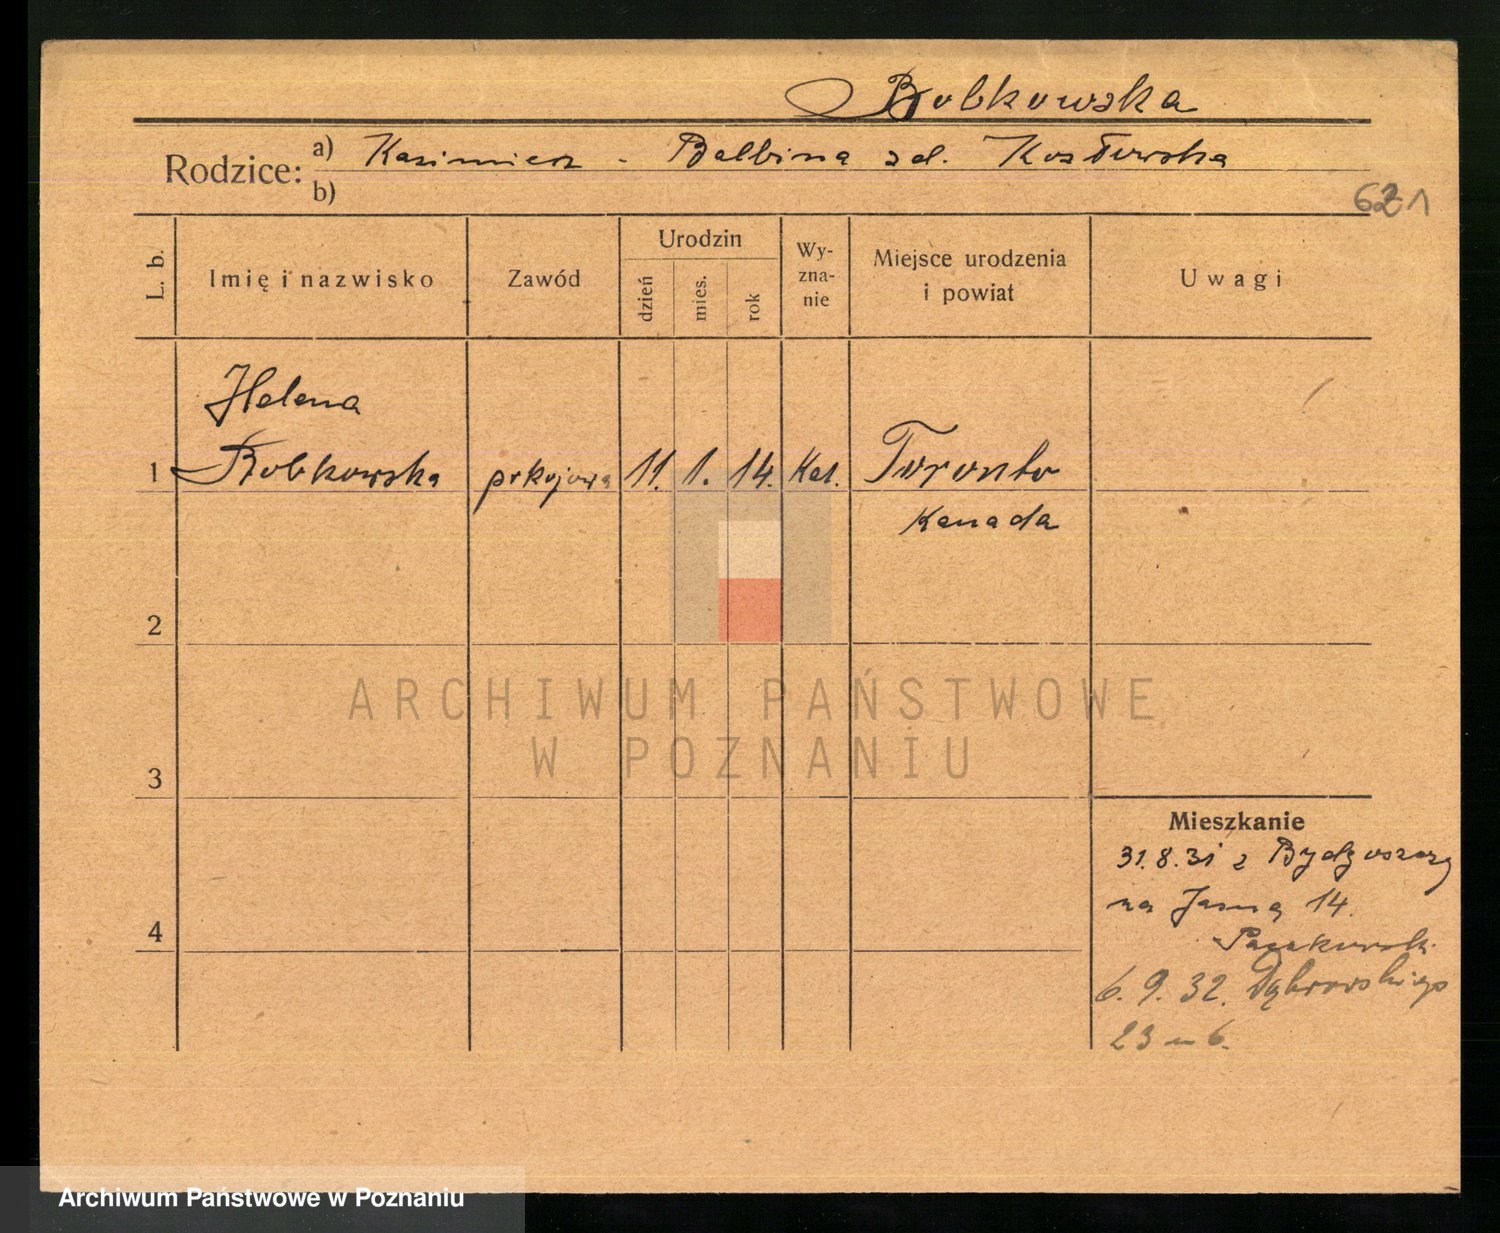 Bobkowska
Rodzice: a) Kazimierz - Balbina zd. Kozłowska
b)
621
L. b.
Imię i nazwisko
Zawód
Urodzin
dzień
mies.
rok
Wy-
zna-
nie
Miejsce urodzenia
i powiat
Uwagi
Helena
1 Bobkowska pokojowa 11. 1. 14. Kat. Toronto
Kanada
2
3
4
Mieszkanie
31.8.31 z Bydgoszczy
na Jasną 14.
6. 9. 32. Dąbrowskiego
23 m 6.
ARCHIWUM PAŃSTWOWE
W POZNANIU
Archiwum Państwowe w Poznaniu